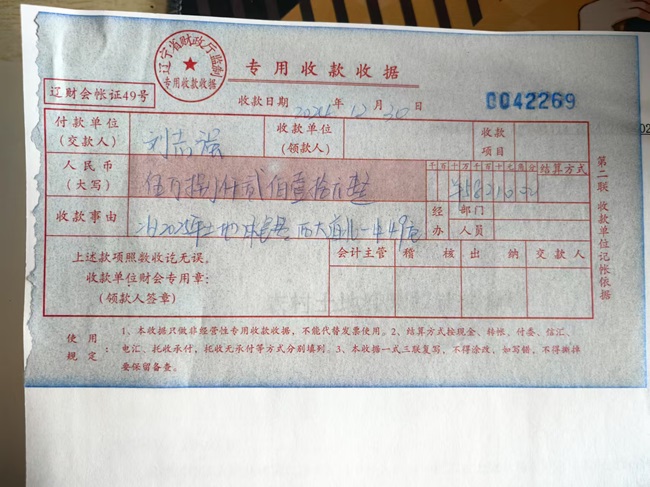 辽宁省财政厅监制
专用收款收据
专用收款收据
辽财会帐证49号
收款日期 年 12月30日
0042269
付款单位(交款人) 刘志强
收款单位(领款人)
收款项目
人民币(大写) 伍万捌仟贰佰壹拾元整
千百十万千百十元角分
结算方式
¥58210.00
收款事由 2025年土地
经办
部门
人员
上述款项照数收讫无误。
收款单位财会专用章:
(领款人签章)
会计主管 稽核 出纳 交款人
第二联 收款单位记帐依据
使用规定:
1、本收据只做非经营性专用收款收据,不能代替发票使用。2、结算方式按现金、转帐、付委、信汇、
电汇、托收承付,托收无承付等方式分别填列。3、本收据一式三联复写,不得涂改、如写错,不得撕掉
要保留备查。